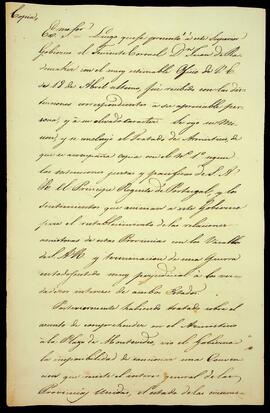 Copia,
Exmo Sor Luego que se presentó á este Superior
Gobierno el Teniente Coronel Dn Juan de
con el muy estimable Oficio de V. E.
de 18 de Abril ultimo, fué recibido con las
correspondientes á su apreciable
y á su elevado caracter. Se oyó su
y se concluyó el Tratado de Armisticio, de
que se acompaña copia con el Nº 1º segun
las intenciones justas y pacificas de S. A.
R. El Principe Regente de Portugal, y los
sentimientos que animan á este Gobierno
para el establecimiento de las relaciones
amistosas de estas Provincias con los Vasallos
de S.A.R. y terminacion de una Guerra
muy perjudicial á los verda-
deros intereses de ambos Estados.
Posteriormente habiendo tratado sobre el
asunto de comprehender en el Armisticio
á la Plaza de Montevideo, vió el Gobierno
la imposibilidad de sancionar una Conven-
cion que el interes general de las
Provincias Unidas, el estado de las